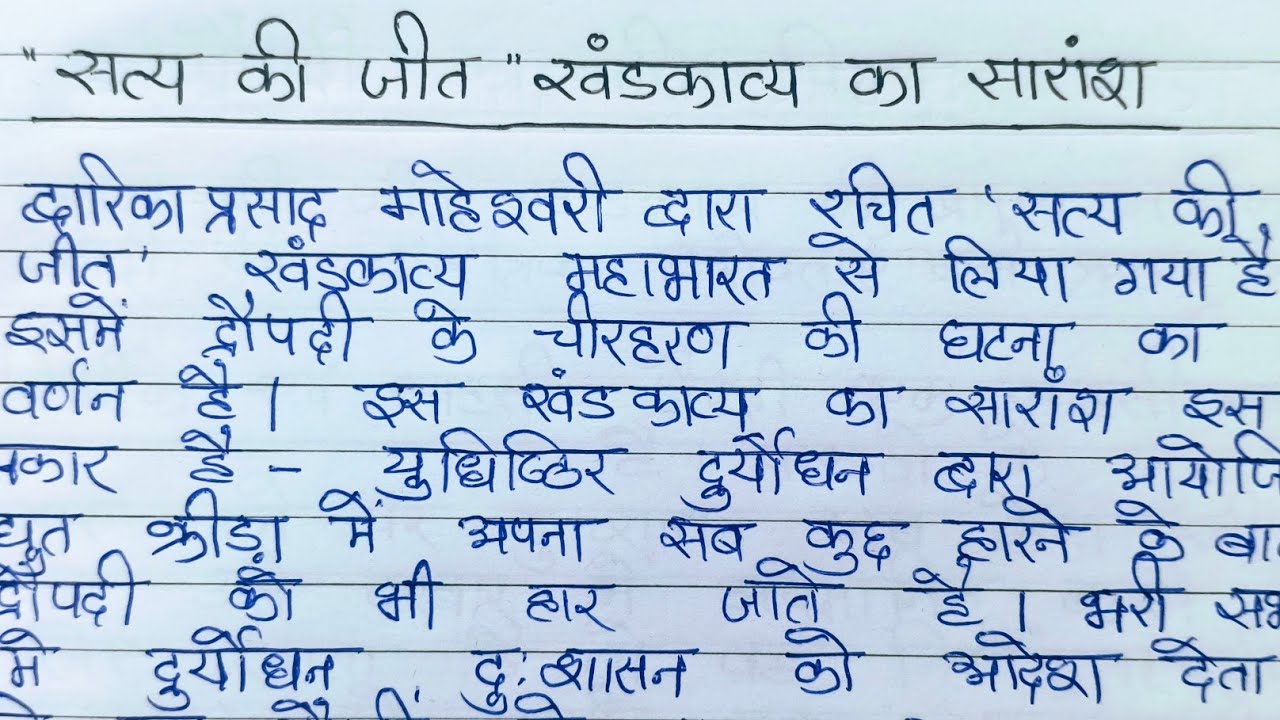 "सत्य की जीत" खंडकाव्य का सारांश
द्वारिका प्रसाद माहेश्वरी द्वारा रचित 'सत्य की
जीत' खंडकाव्य महाभारत से लिया गया है
इसमें द्रौपदी के चीरहरण की घटना का
वर्णन है। इस खंडकाव्य का सारांश इस
प्रकार है - युधिष्ठिर दुर्योधन द्वारा आयोजि
द्यूत क्रीड़ा में अपना सब कुछ हारने के बा
द्रौपदी को भी हार जाते है। भरी सभ
मे दुर्योधन दुःशासन को आदेश देता